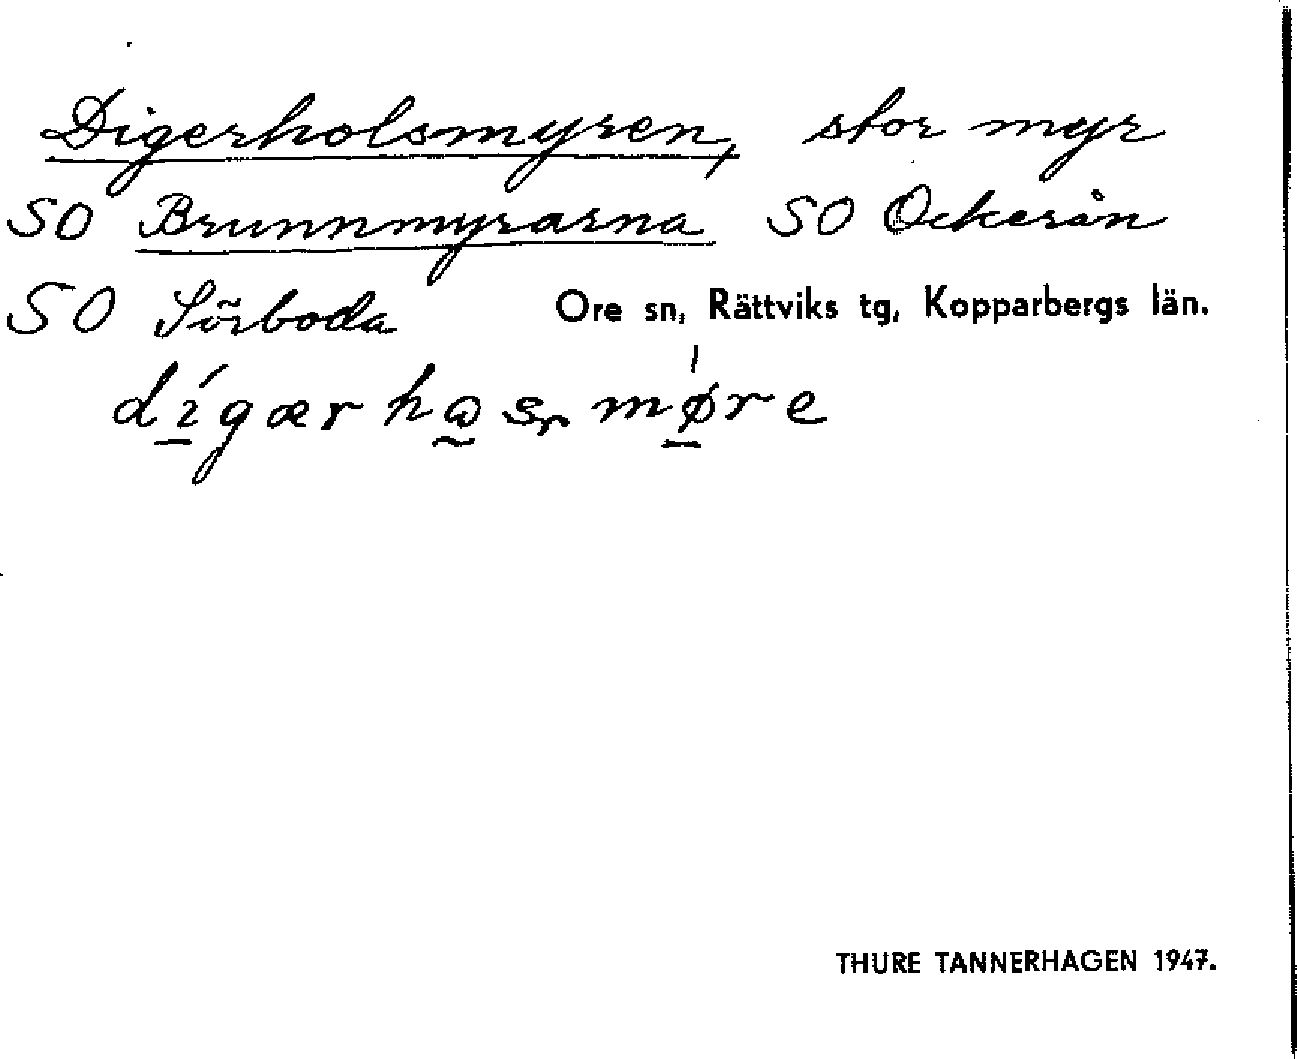 Digerholsmyren, stor myr
SO Brunnmyrarna SO Ockerån
SO Sörboda Ore sn, Rättviks tg, Kopparbergs län.
dígær has mǿre
THURE TANNERHAGEN 1947.